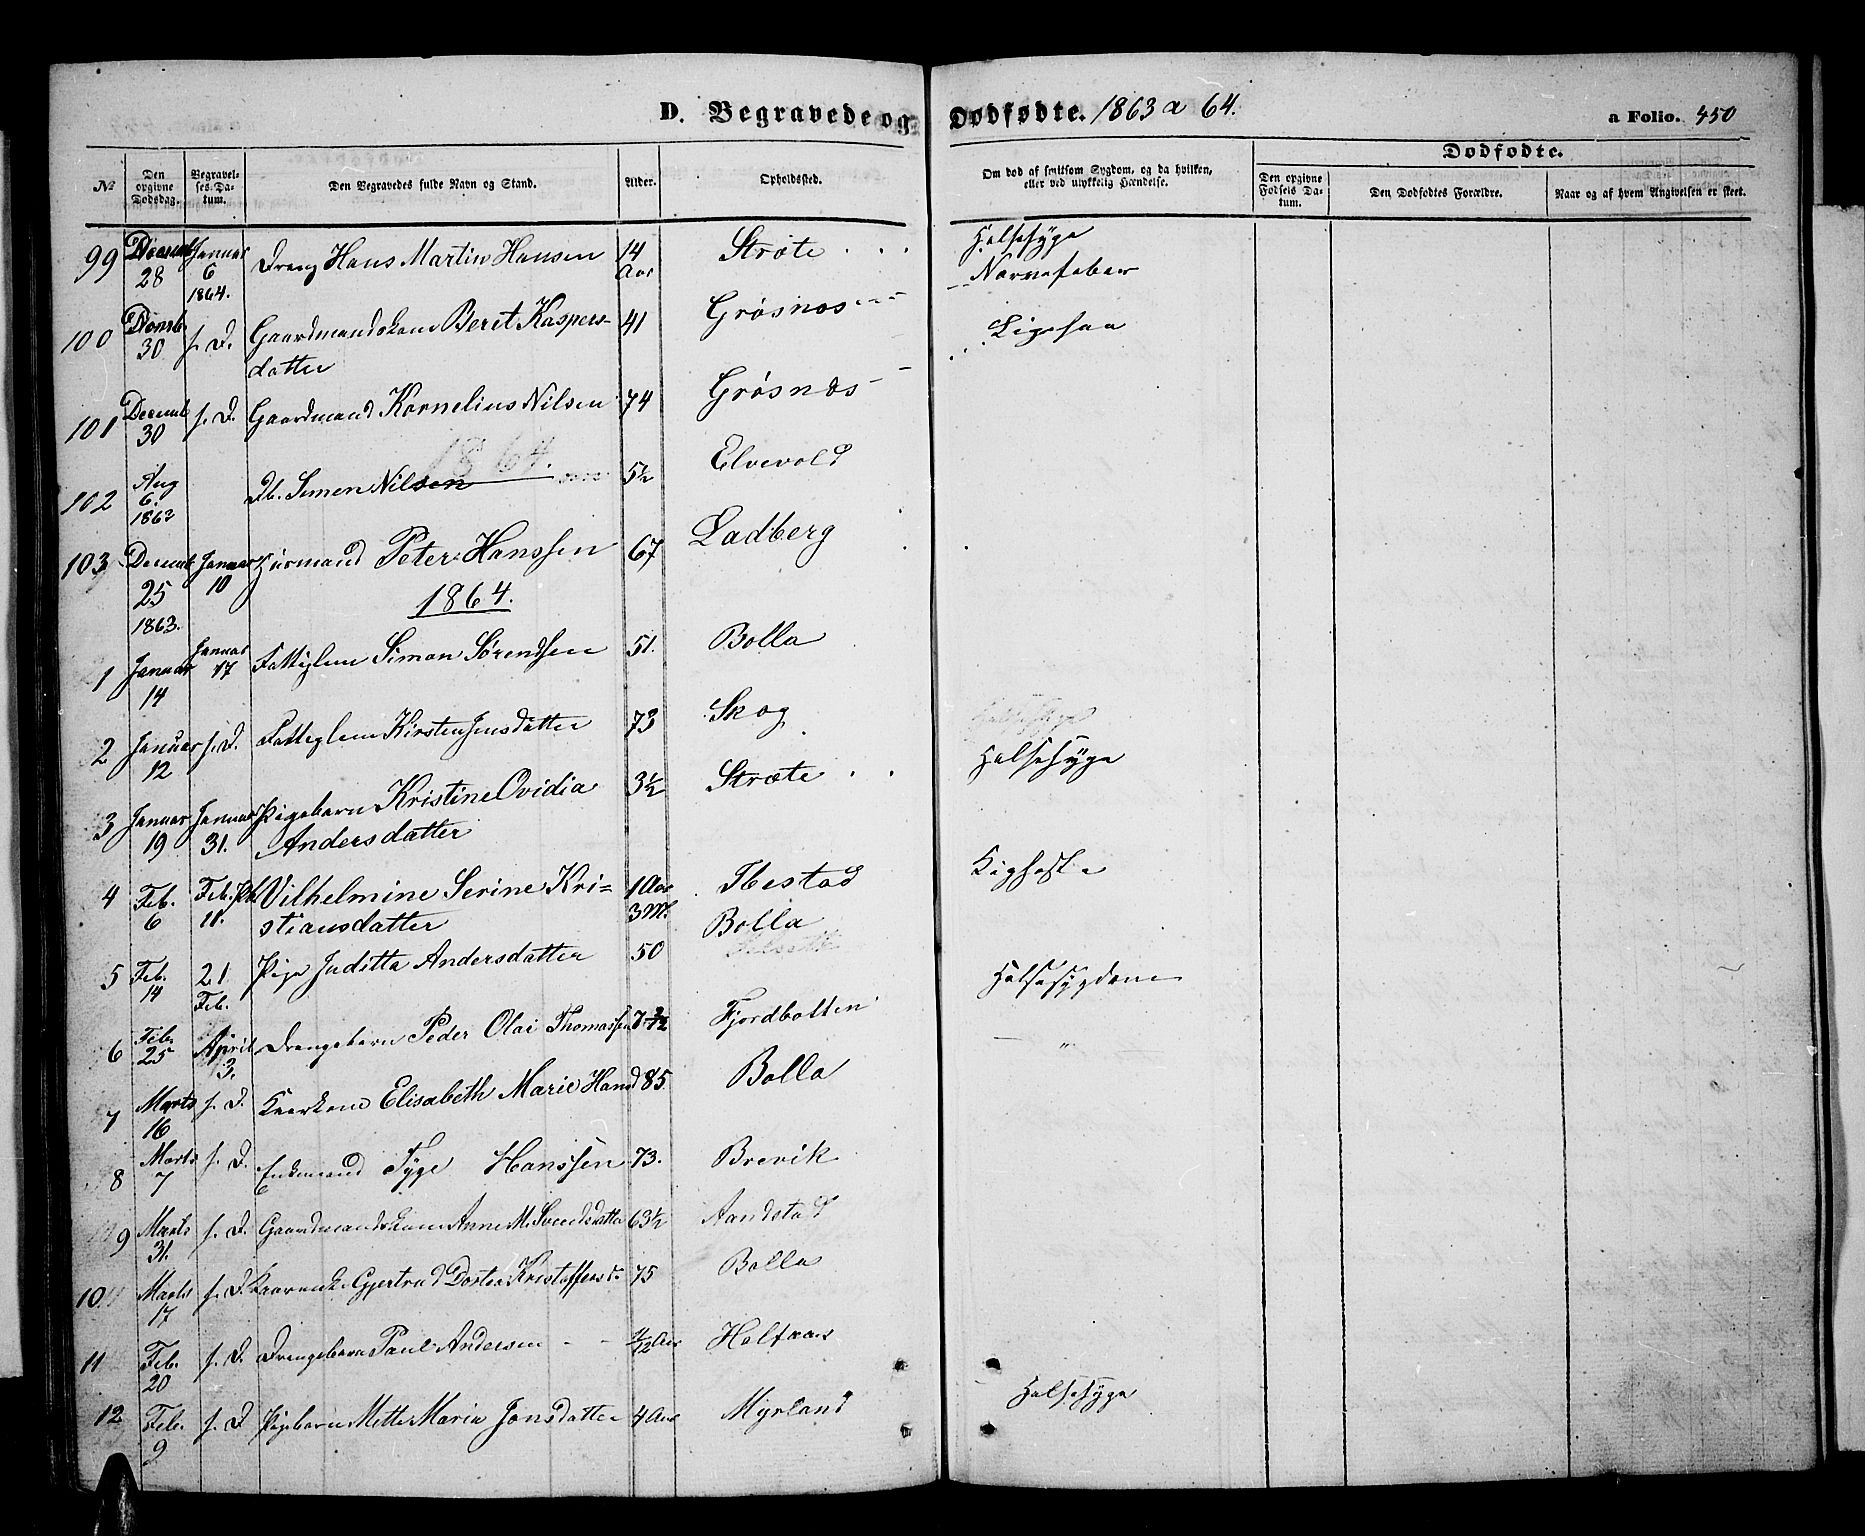 D. Begravede og Dødfødte. 1863 a 64.
a Folio. 450
Dødfødte.
No
Den opgivne Dødsdag.
Begravelses-Datum.
Den Begravedes fulde Navn og Stand.
Alder.
Opholdssted.
Om død af smitsom Sygdom, og da hvilken, eller ved ulykkelig Hændelse.
Den opgivne Fødsels Datum.
Den Dødfødtes Forældre.
Naar og af hvem Angivelsen er skeet.
99 28 Januar 6 1864. Dreng Hans Martin Hansen 14 Aar Stræte Halsesyge
Nervefeber
100 30 s. D. Gaardmandskone Beret Kaspers- 41 Grøsnæs
datter
101 Decemb 30 s. D. Gaardmand Kornelius Nilsen 74 Grøsnæs
1864.
102 Aug 6. 1863 Db. Simon Nilsen 5½ Elvevold
103 Decemb 25 1863. Januar 10 Huusmand Peter Hanssen 67 Ladberg
1864.
1 Januar 14 Januar 17 Fattiglem Simon Sørendsen 51. Bolla
2 Januar 12 s. D. Fattiglem Kirsten Jensdatter 73 Skog
3 Januar 19 Januar 31. Pigebarn Kristine Ovidia 3½ Stræte Halsesyge
Andersdatter
4 Feb. 6 Feb. 11. Vilhelmine Serine Kri= 1 Aar 3 M. Ibestad Kighoste
stiansdatter
5 Feb. 14 21 Feb. Pige Juditta Andersdatter 50 Bolla
6 Feb. 25 April 3. Drengebarn Peder Olai Thomassen Fjordbotten — " —
Halsesygdom
7 Marts 16 s. D. Elisabeth Marie Hansd 85. Bolla
8 Marts 7 s. D. Enkemand Tyge Hanssen 73. Brevik
9 Marts 31. s. D. Gaardmandskone Anne M. Svendsdatter 63½ Aandstad
10 Marts 17 s. D. Gjertrud Dortea Kristoffersd. 75 Bolla
11 Feb. 20 s. D. Drengebarn Paul Andersen
12 Feb. 9 s. D Pigebarn Mette Maria Jonsdatter 4 Aar Myrland Halsesyge